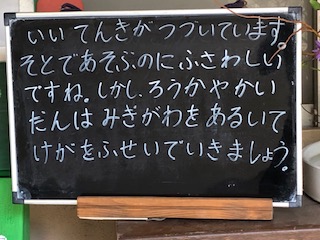 いいてんきがつづいています
そとであそぶのにふさわしい
ですね。しかし、ろうかやかい
だんはみぎがわをあるいて
けがをふせいでいきましょう。